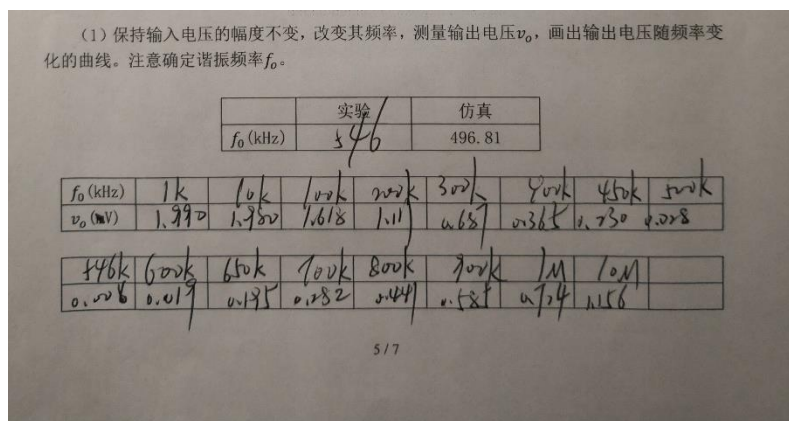 （1）保持输入电压的幅度不变，改变其频率，测量输出电压vₒ，画出输出电压随频率变
化的曲线。注意确定谐振频率fₒ。
实验 仿真
f₀(kHz) 546 496.81
f₀(kHz) 1k 10k 100k 200k 300k 400k 450k 500k
vₒ(V) 1.990 1.980 1.618 1.11 0.687 0.365 0.230 0.028
546k 600k 650k 700k 800k 900k 1M 10M
0.006 0.019 0.195 0.282 0.441 0.585 0.724 1.156
5/7